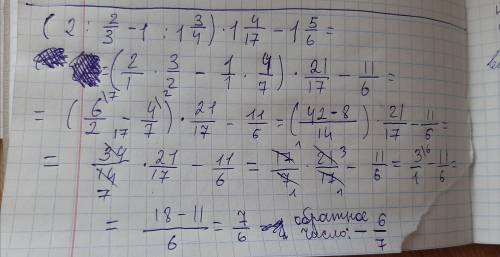 ( 2 : 2/3 - 1 : 1 3/4 ) · 1 4/17 - 1 5/6 =
= ( 2/1 · 3/2 - 1/1 · 4/7 ) · 21/17 - 11/6 =
= ( 6/2 \7 - 4/7 \2 ) · 21/17 - 11/6 = ( 42-8 / 14 ) · 21/17 - 11/6 =
= 34 17 / 14 7 · 21/17 - 11/6 = 17 1 / 7 1 · 21 3 / 17 1 - 11/6 = 3/1 \6 - 11/6 =
= 18-11 / 6 = 7/6 обратное
число: - 6/7